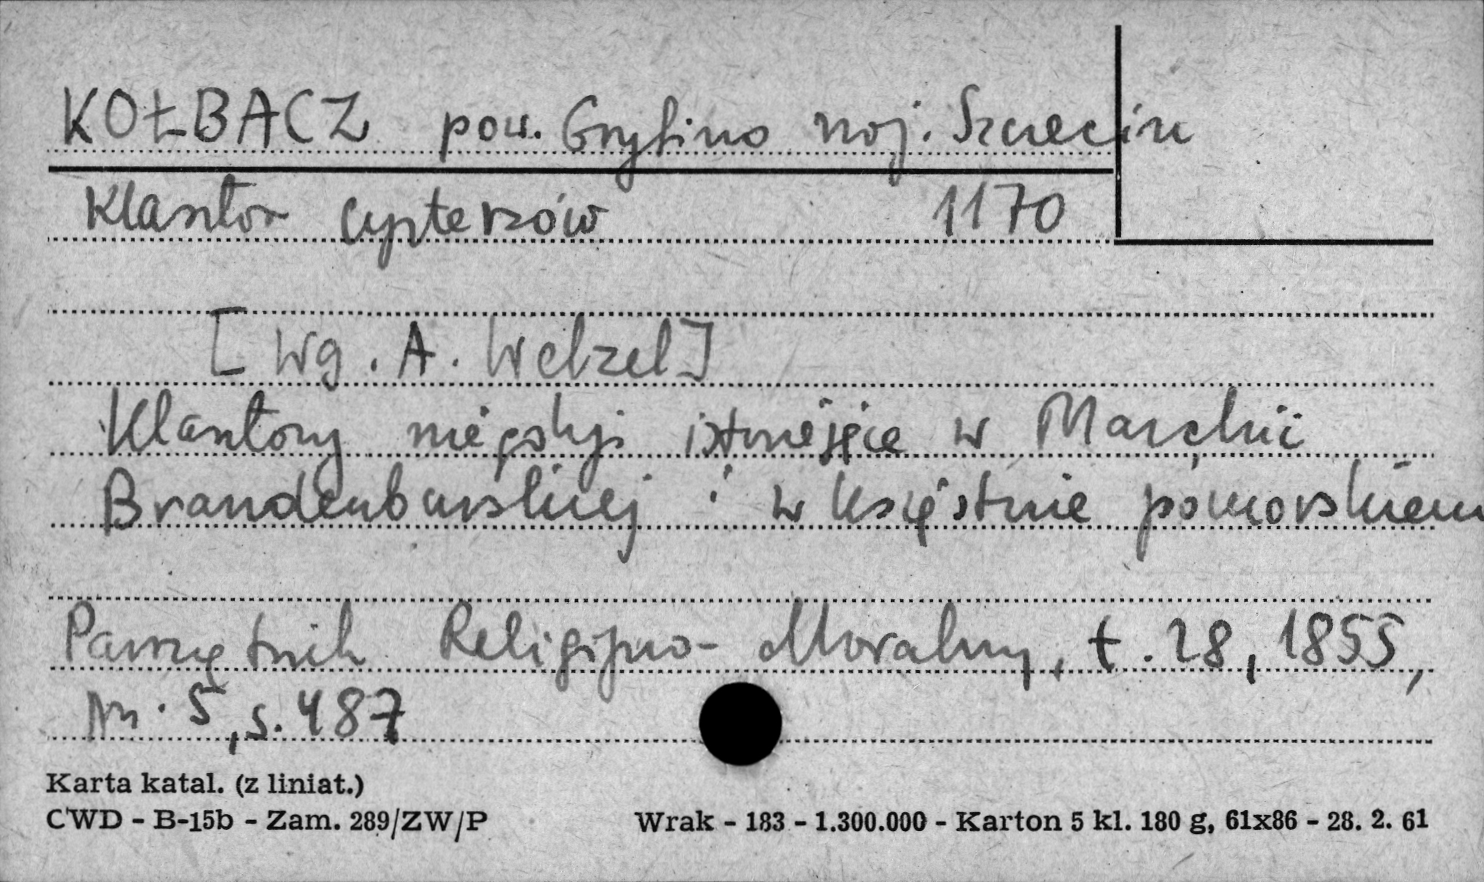 KOŁBACZ pow. Gryfino woj. Szczecin
Klasztor cystersów 1170
[Wg. A. Wetzel]
Klasztory niegdyś istniejące w Marchii
Brandenburskiej i w księstwie pomorskiem
Pamiętnik Religijno-Moralny, t. 28, 1855,
Nr. 5, s. 487
Karta katal. (z liniat.)
CWD - B-15b - Zam. 289/ZW/P Wrak - 183 - 1.300.000 - Karton 5 kl. 180 g, 61x86 - 28. 2. 61